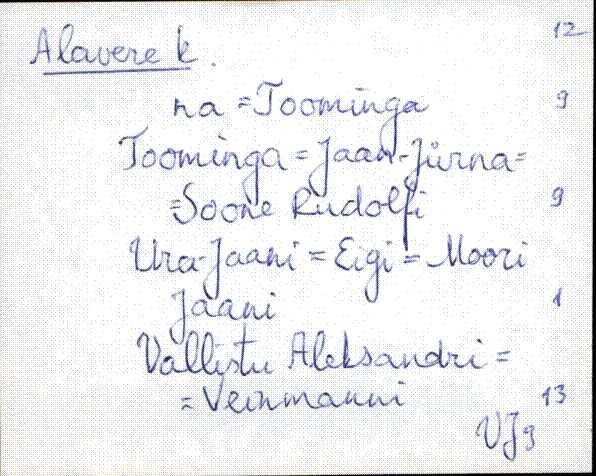 Alavere k. 12
na = Toominga 9
Toominga = Jaan-Jürna =
= Soone Rudolfi 9
Ura-Jaani = Eigi = Moori
Jaani 1
Vallistu Aleksandri =
= Veinmanni 13
VJ9